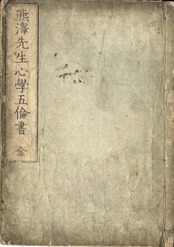 熊澤先生心學五倫書 全